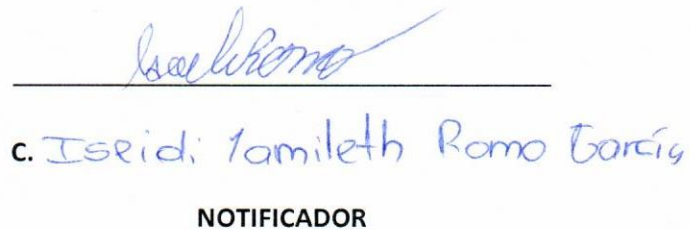 C. Iseidi Yamileth Romo García
NOTIFICADOR